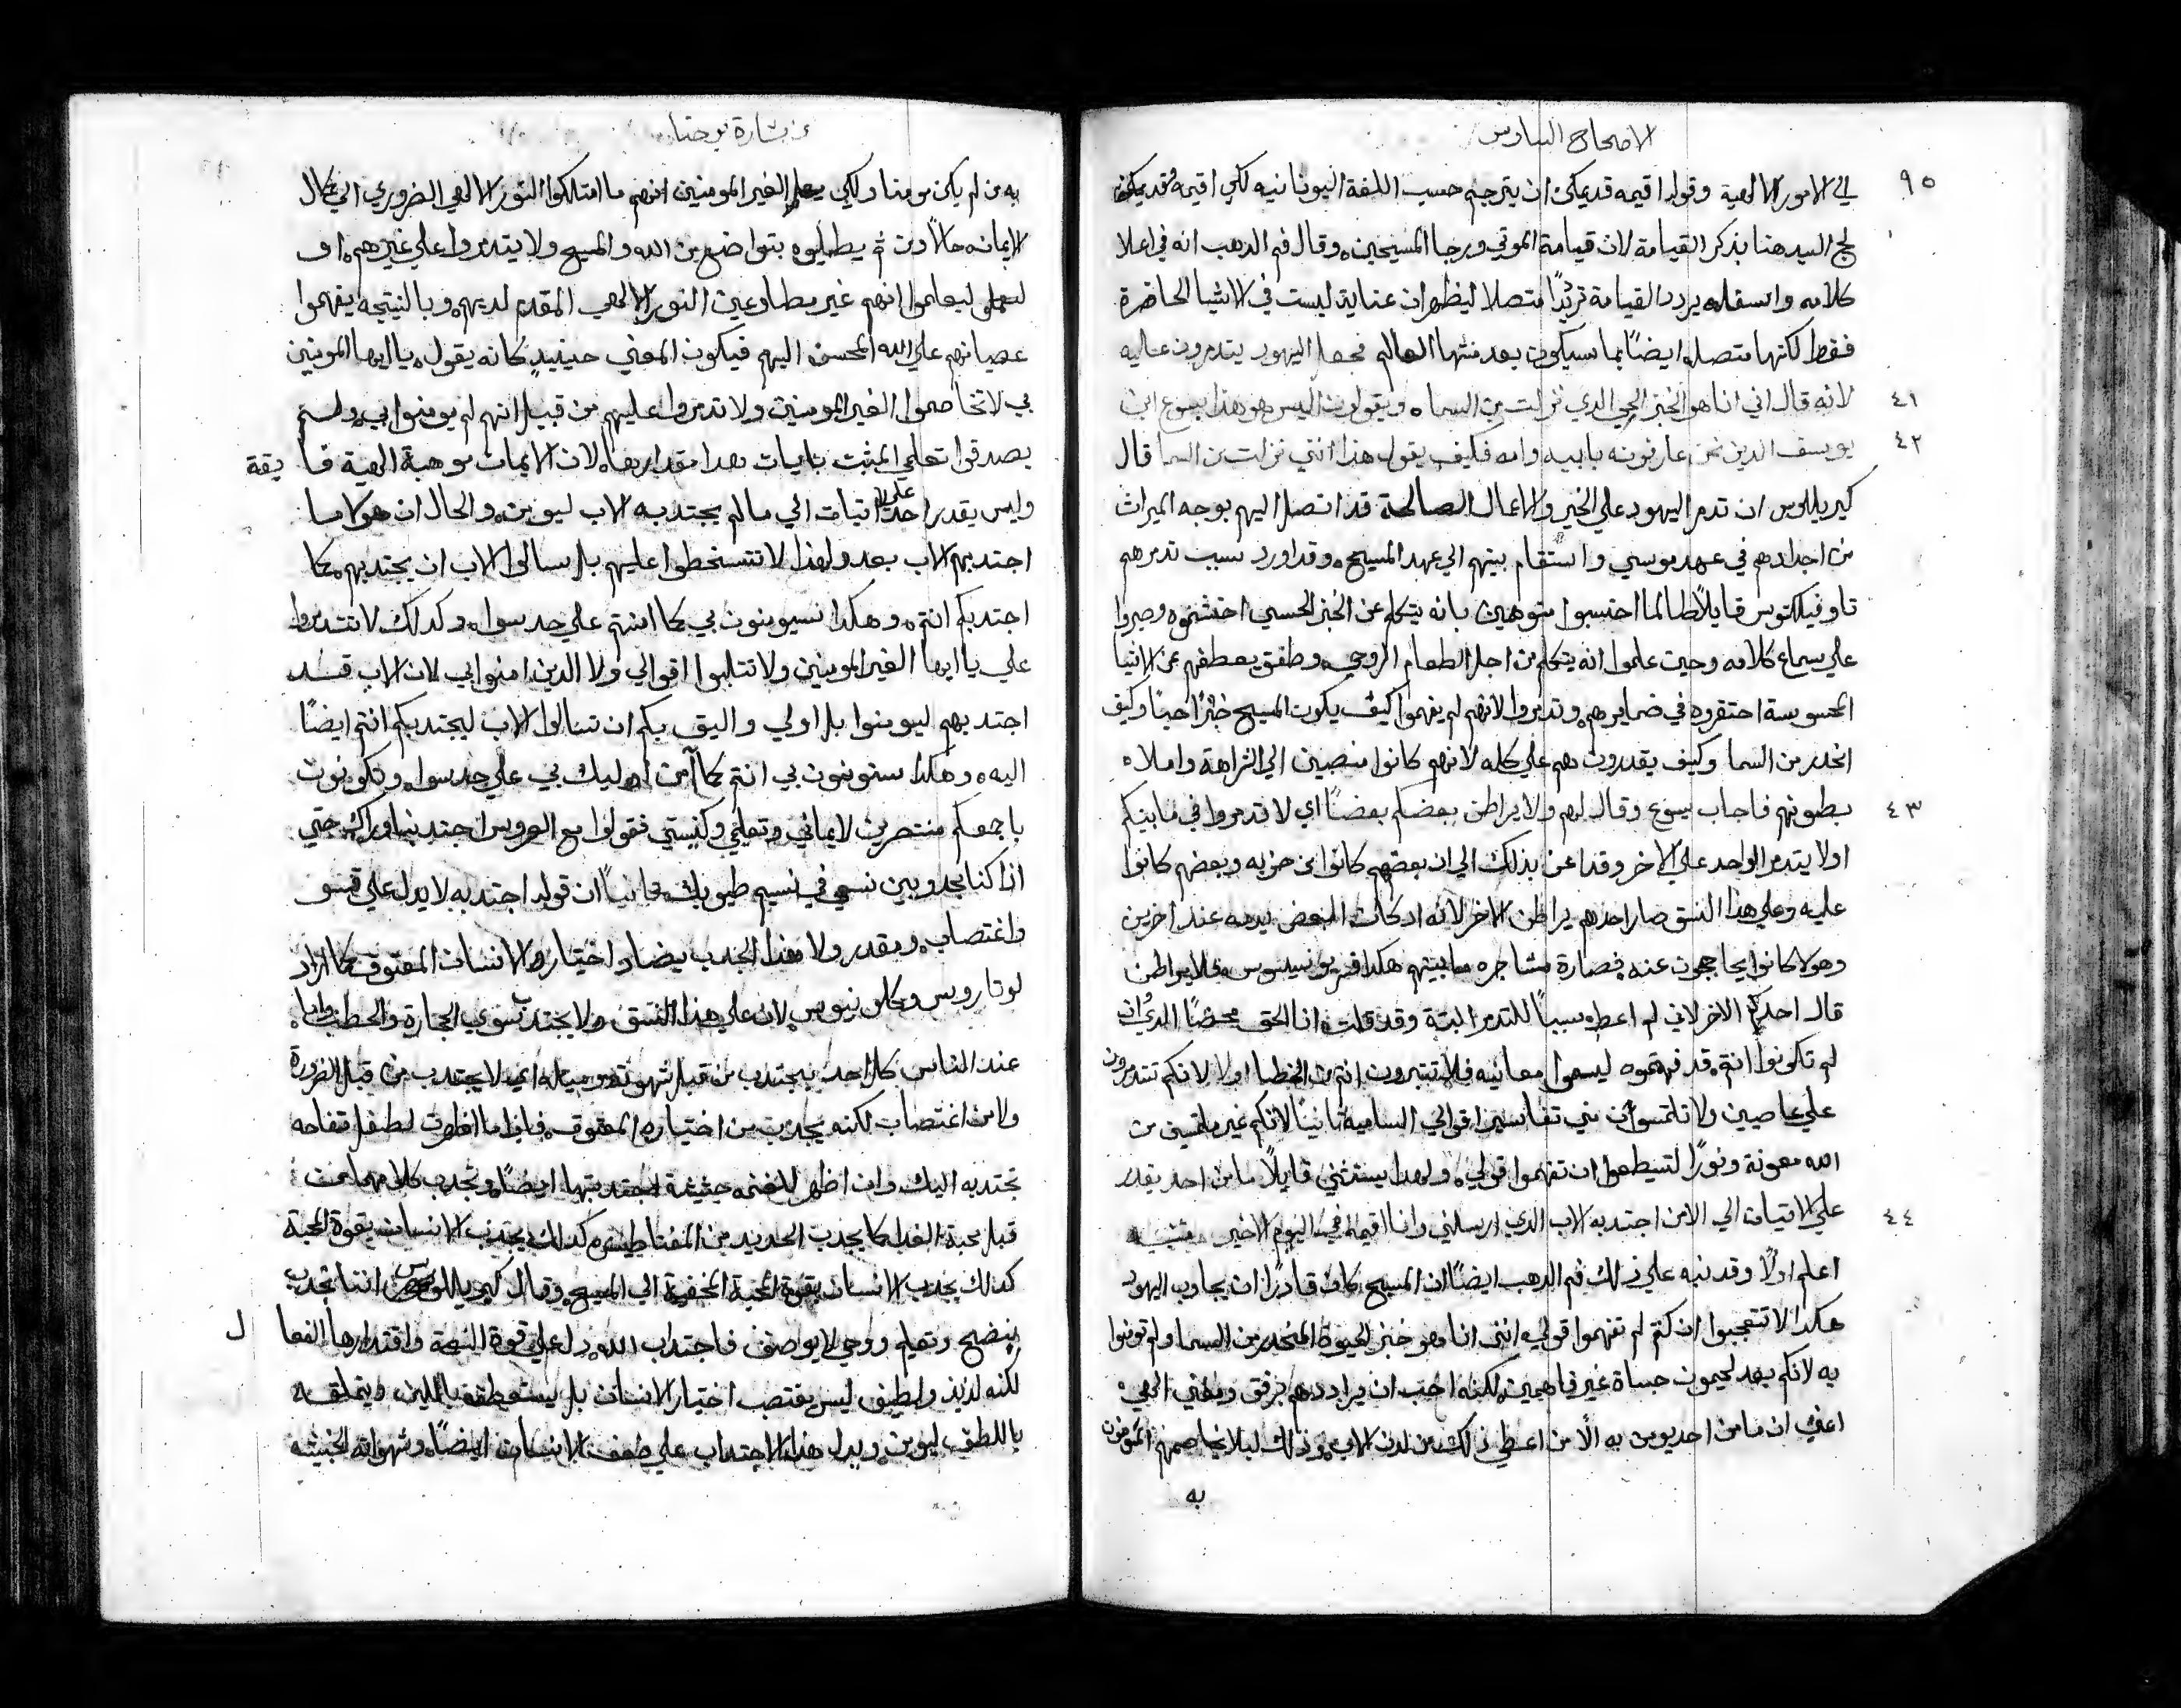 الاصحاح السادس
٩٥
الي الامور الالهية وقوله اقيمه قد يمكن ان يترجم حسب اللغة اليونانيه لكي اقيمه وقد يمكن
لج السيد هنا بذكر القيامة لان قيامة الموتي ورجا المسيحيين وقال فم الدهب انه في اعلا
كلامه واسفله يردد القيامة ترديدًا متصلا ليظهر ان عنايته ليست في الاشيا الحاضرة
فقط لكنها متصله ايضًا بما سيكون بعد منتها العالم فجعل اليهود يتدمرون عليه
٤١ لانه قال اني انا هو الخبز الحي الذي نزلت من السما ويقولون اليس هو هذا يسوع ابن
٤٢ يوسف الدين نحن عارفونه بابيه وامه فكيف يقول هذا انني نزلت من السما قال
كيريللوس ان تدمر اليهود علي الخير والاعمال الصالحة قد اتصل اليهم بوجه الميراث
من اجدادهم في عهد موسي واستقام بينهم الي عهد المسيح وقد اورد سبب تدمرهم
تاوفيلكتوس قايلاً طالما احتسبوا متوهمين بانه يتكلم عن الخبز الحسي احتشموه وصبروا
علي سماع كلامه وحين علموا انه يتكلم من اجل الطعام الروحي وطفق يعطفهم عن الاشيا
المحسوسة احتقروه في ضمايرهم وتدمروا لانهم لم يفهموا كيف يكون المسيح خبزًا حيًا وكيف
انحدر من السما وكيف يقدرون هم علي اكله لانهم كانوا منصبين الي الشراهة واملاه
٤٣ بطونهم فاجاب يسوع وقال لهم ولا يراطن بعضكم بعضًا اي لا تدمروا في ما بينكم
اولا يتدمر الواحد علي الاخر وقد اعن بذلك الي ان بعضهم كانوا من حزبه وبعضهم كانوا
عليه وعلي هذا النسق صار احدهم يراطن الاخر لانه اد كان البعض يدمه عند اخرين
وهولا كانوا يحاججون عنه فصارة مشاجره ما بينهم هكدا فسر يونسينوس فلا يراطن
قال احدكم الاخر لاني لم اعطه سببًا للتدمر البتة وقد قلت انا الحق محضًا الدي ان
لم تكونوا انتم قد فهمتوه ليسموا معانيه فلا تتبرون انتم من الخطا اولا لانكم تتدمرون
علي عاصيين ولا تلتمسون مني تفاسير اقوالي الساميه ثانيًا لانكم غير ملتمسين من
الله معونة ونورًا لتسطعوا ان تفهموا قولي ولهدا يستثني قايلاً ما من احد يقدر
٤٤ علي الاتيان الي الا من اجتدبه الاب الدي ارسلني وانا اقيمه في اليوم الاخير
اعلم اولاً وقد نبه علي ذلك فم الدهب ايضًا ان المسيح كان قادرًا ان يجاوب اليهود
هكدا لا تتعجبوا ان كنتم لم تفهموا قولي انني انا هو خبز الحيوة المنحدر من السما ولم تومنوا
به لانكم بعد لحيمون حساة غير فاهمين لكنه احب ان يرادهم برفق ومعني الهي
اعني ان ما من احد يومن به الاّ من اعطي ذلك من لدن الاب وذلك ليلا يخاصمهم المومنون
به
من بشارة يوحنا
به من لم يكن مومنا ولكي يعلم الغير المومنين انهم ما امتلكوا النور الالهي الضروري الي كمال
الايمانه حالاً ومن ثم يطلبوه بتواضع من الله والمسيح ولا يتدمروا علي غيرهم او
ليعلموا انهم غير مطاوعين النور الالهي المقدم لديهم وبالنتيجه يفهموا
عصيانهم علي الله المحسن اليهم فيكون المعني حينيدٍ كانه يقول يا ايها المومنين
بي لا تخاصموا الغير المومنين ولا تدمروا عليهم من قبل انهم لم يومنوا بي ولم
يصدقوا تعلمي المثبت بايات هدا مقدارها لان الايمان موهبة الهية فايقة
وليس يقدر احد علي الاتيان الي ما لم يجتدبه الاب ليومن والحال ان هولا ما
اجتدبهم الاب بعد ولهذا لا تتسخطوا عليهم بل اسالوا الاب ان يجتدبهم كما
اجتدبكم انتم وهكدا سيومنون بي كما امنتم علي حد سوا وكدلك لا تتدمروا
علي يا ايها الغير المومنين ولا تتلبوا اقوالي ولا الدين امنوا بي لان الاب قد
اجتدبهم ليومنوا بل اولي واليق بكم ان تسالوا الاب ليجتدبكم انتم ايضًا
اليه وهكدا ستومنون بي انتم كما آمن اوليك بي علي حد سوا وتكونون
باجمعكم منتصرين لايماني وتعلمي وكنيستي فقولوا مع العروس اجتدبنا وراك حتي
اذا كنا مجدوبين نسعي في نسيم طيوبك ثانيًا ان قوله اجتدبه لا يدل علي قسر
واغتصاب ومقدر ولا هذا الجدب يضاد اختيار الانسان المعتوق كما اراد
لوتاروس وكلونيوس لان علي هذا النسق ولا يجتدب سوي الحجارة والحطب واما
عند الناس كل احد يجتدب من قبل شهوته وميله اي لا يجتدب من قبل الضرورة
ولا من اغتصاب لكنه يجدب من اختياره المعتوق فاذا ما اظهرت لطفل تفاحه
تجتدبه اليك وان اظهر للغنمه حشيشة اجتدبتها ايضًا وتجدب كلا مهما
قبل محبة الغدا كما يجدب الحديد من المغناطيس كدلك يجتدب الانسان بقوة المحبة
كدلك يجدب الانسان بقوة المحبة المخفية الي المسيح وقال كيريللوس اننا نجدب
بنضيح وتعليم ووحي لا يوصف فاجتداب الله دل علي قوة النعمة واقتدارها الفعال
لكنه لذيذ ولطيف ليس يغتصب اختيار الانسان بل يستعطفه باللين ويتملقه
باللطف ليومن ويدل هذا الاجتداب علي ضعف الانسان ايضًا وشهواته الخبيثه